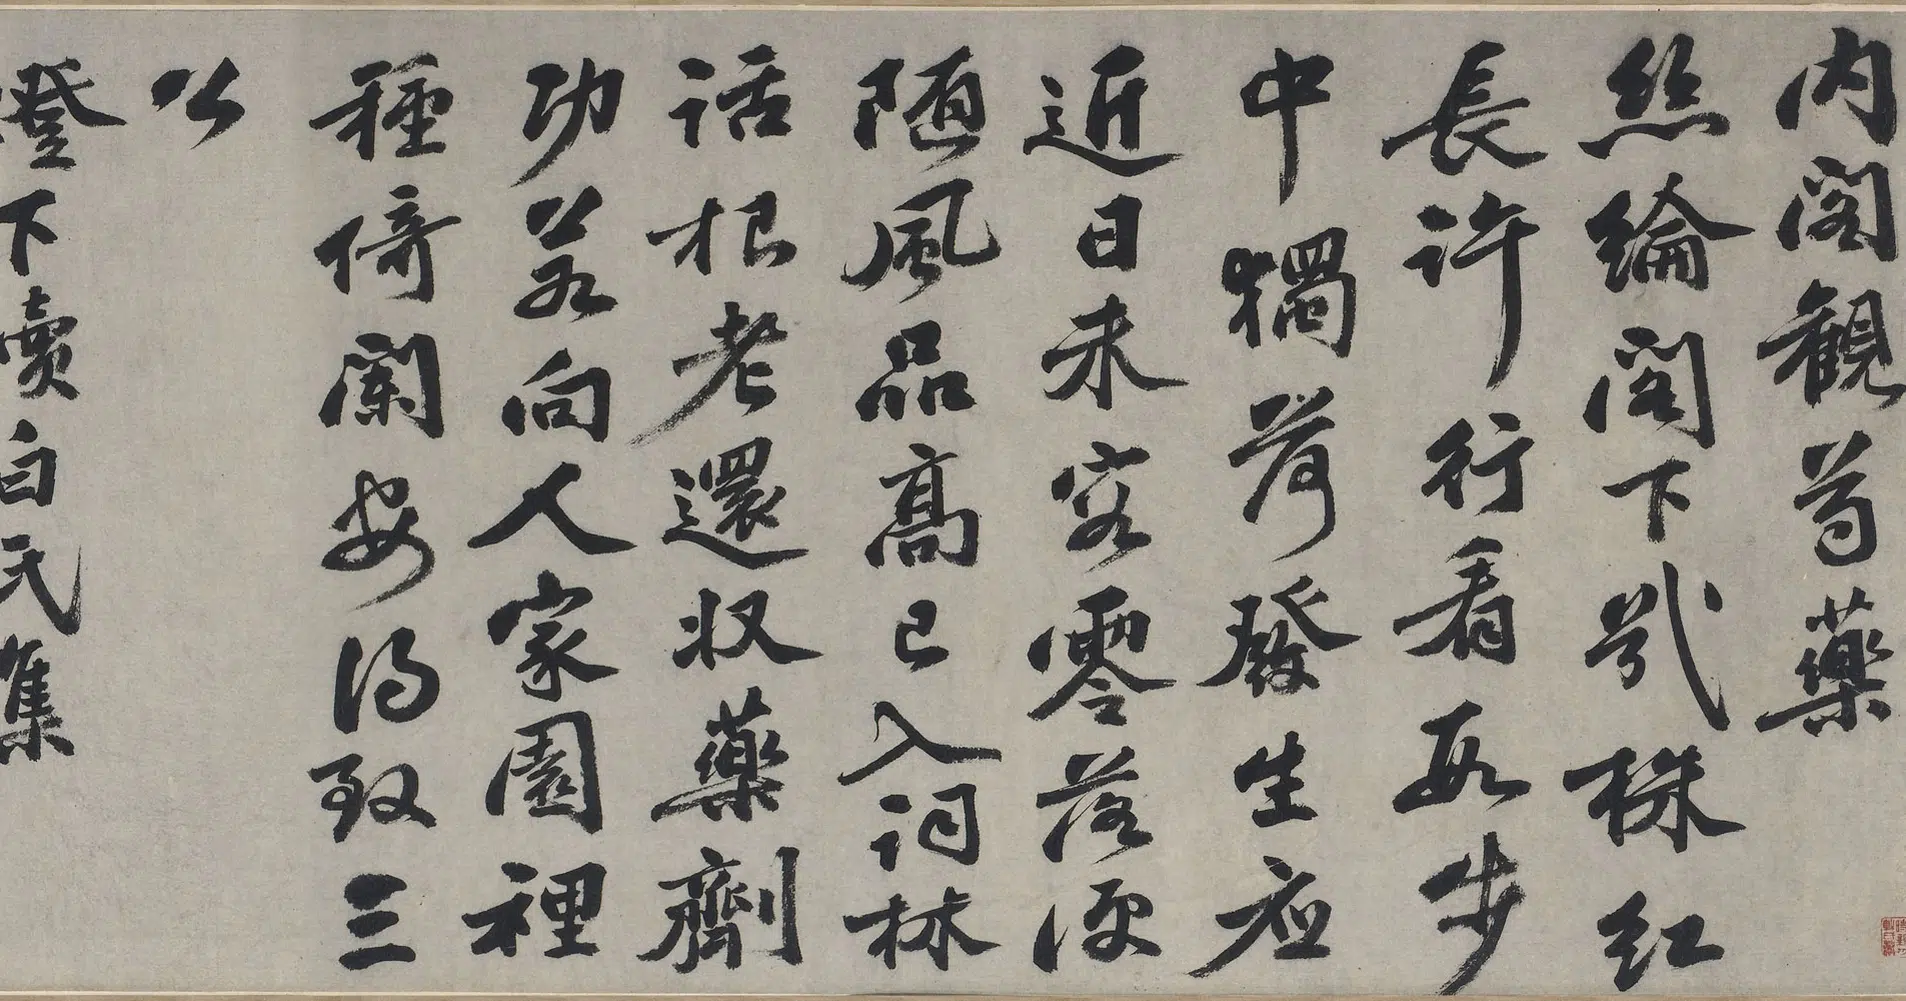 内閣觀芍藥
絲綸閣下幾株紅
長許行看數步
中獨荷發生應
近日未容零落便
隨風品高已入詞林
話根老還收藥劑
功若向人家園裡
種倚闌安得致三
公
燈下讀白氏集